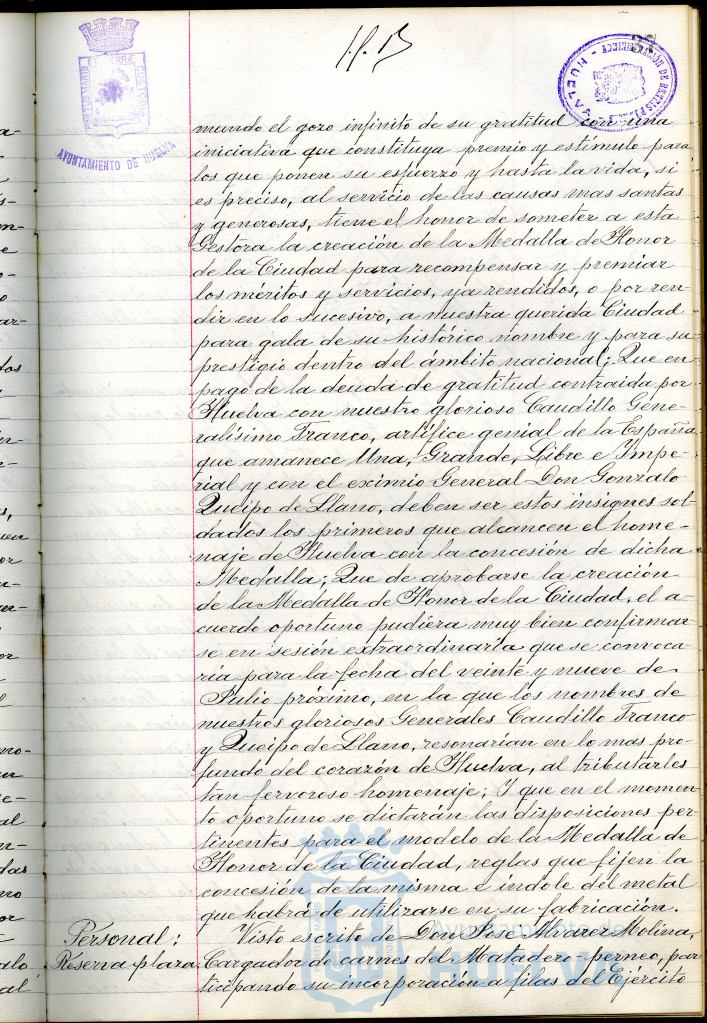 AYUNTAMIENTO DE HUELVA
mundo el gozo infinito de su gratitud con una
iniciativa que constituya premio y estímulo para
los que ponen su esfuerzo y hasta la vida, si
es preciso, al servicio de las causas mas santas
y generosas, tiene el honor de someter a esta
Gestora la creación de la Medalla de Honor
de la Ciudad para recompensar y premiar
los méritos y servicios, ya rendidos, o por ren-
dir en lo sucesivo, a nuestra querida Ciudad
para gala de su histórico nombre y para su
prestigio dentro del ámbito nacional; Que en
pago de la deuda de gratitud contraida por
Huelva con nuestro glorioso Caudillo Gene-
ralísimo Franco, artífice genial de la España
que amanece Una, Grande, Libre e Impe-
rial y con el eximio General Don Gonzalo
Queipo de Llano, deben ser estos insignes sol-
dados los primeros que alcancen el home-
naje de Huelva con la concesión de dicha
Medalla; Que de aprobarse la creación
de la Medalla de Honor de la Ciudad, el a-
cuerdo oportuno pudiera muy bien confirmar
se en sesión extraordinaria que se convoca
ría para la fecha del veinte y nueve de
Julio próximo, en la que los nombres de
nuestros gloriosos Generales Caudillo Franco
y Queipo de Llano, resonarían en lo mas pro-
fundo del corazón de Huelva, al tributarles
tan fervoroso homenaje; Y que en el momen-
to oportuno se dictarán las disposiciones per-
tinentes para el modelo de la Medalla de
Honor de la Ciudad, reglas que fijen la
concesión de la misma e índole del metal
que habrá de utilizarse en su fabricación.
Personal: Visto escrito de Don José Alvarez Molina,
Reserva plaza Cargador de carnes del Matadero-perneo, par
ticipando su incorporación a filas del Ejército
Ayuntamiento de
HUELVA